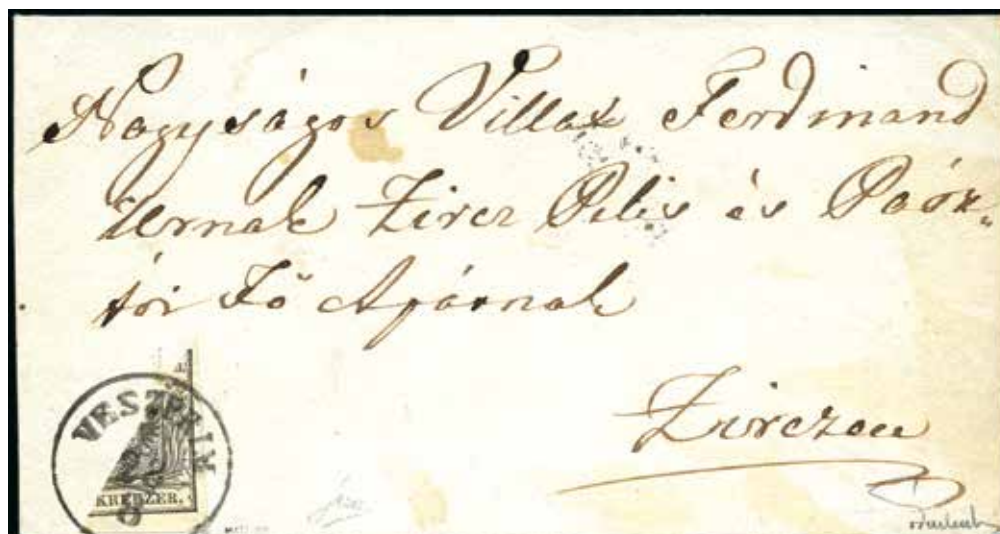 Nagyságos Villax Ferdinand
Urnak Zircz Pilis és Pász-
tói Fő Apátnak
Zirczen
VESZPRIM
KREUZER.